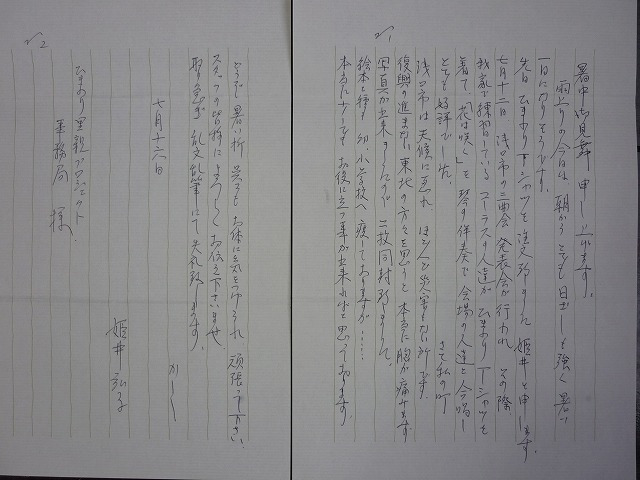 1
暑中お見舞 申し上げます。
雨上りの今日は、朝からとても日ざしも強く 暑い
一日になりそうです。
先日 ひまわりTシャツを注文致しました 姫井と申します。
七月十二日 浅口市の三曲会発表会が行われ その際
我家で練習している コーラスの人達が ひまわりTシャツを
着て、「花は咲く」を 琴の伴奏で 会場の人達と合唱し
とても好評でした。 さて私の町
浅口市は 天候に恵まれ ほとんど災害もない所です。
復興の進まない東北の方々を思うと 本当に胸が痛みます
写真が出来ましたので 二枚同封致しました。
絵本と種も 幼、小学校へ渡しておりますが……
本当に少しでも お役に立つ事が出来ればと思っております。
2
どうぞ 暑い折 呉々も お体に気をつけられ 頑張って下さい。
スタッフの皆様に よろしくお伝え下さいませ
取り急ぎ 乱文乱筆にて失礼致します。
かしこ
七月十六日
姫井 弘子
ひまわり里親プロジェクト
事務局 様